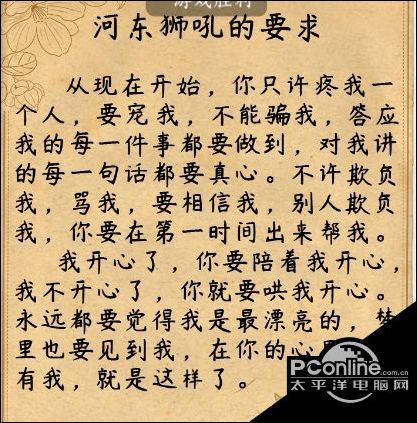 游戏胜利
河东狮吼的要求
从现在开始，你只许疼我一
个人，要宠我，不能骗我，答应
我的每一件事都要做到，对我讲
的每一句话都要真心。不许欺负
我，骂我，要相信我，别人欺负
我，你要在第一时间出来帮我。
我开心了，你要陪着我开心，
我不开心了，你就要哄我开心。
永远都要觉得我是最漂亮的，梦
里也要见到我，在你的心
有我，就是这样了。
PConline
.com.cn
太平洋电脑网